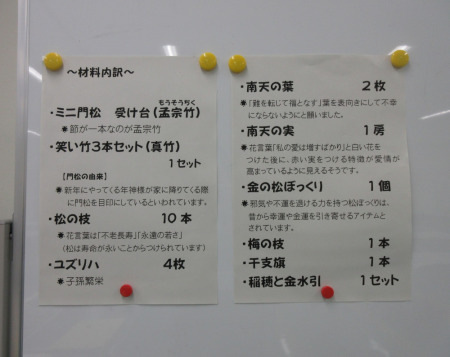 ～材料内訳～
もうそうちく
・ミニ門松　受け台(孟宗竹)
＊節が一本なのが孟宗竹
・笑い竹3本セット(真竹)
1セット
【門松の由来】
＊新年にやってくる年神様が家に降りてくる際
に門松を目印にしているといわれています。
・松の枝　10本
＊花言葉は「不老長寿」「永遠の若さ」
(松は寿命が永いことからつけられています)
・ユズリハ　4枚
＊子孫繁栄
・南天の葉　2枚
＊「難を転じて福となす」葉を表向きにして不幸
にならないようにと願いました。
・南天の実　1房
＊花言葉「私の愛は増すばかり」と白い花を
つけた後に、赤い実をつける特徴が愛情が
高まっているように見えるそうです。
・金の松ぼっくり　1個
＊邪気や不運を退ける力を持つ松ぼっくりは、
昔から幸運や金運を引き寄せるアイテムと
されています。
・梅の枝　1本
・干支旗　1本
・稲穂と金水引　1セット